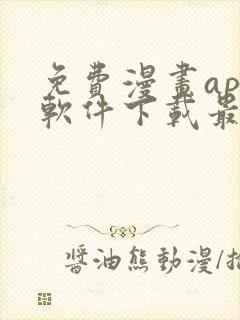 免費漫畫ap
軟件下載最
醬油熊動漫/